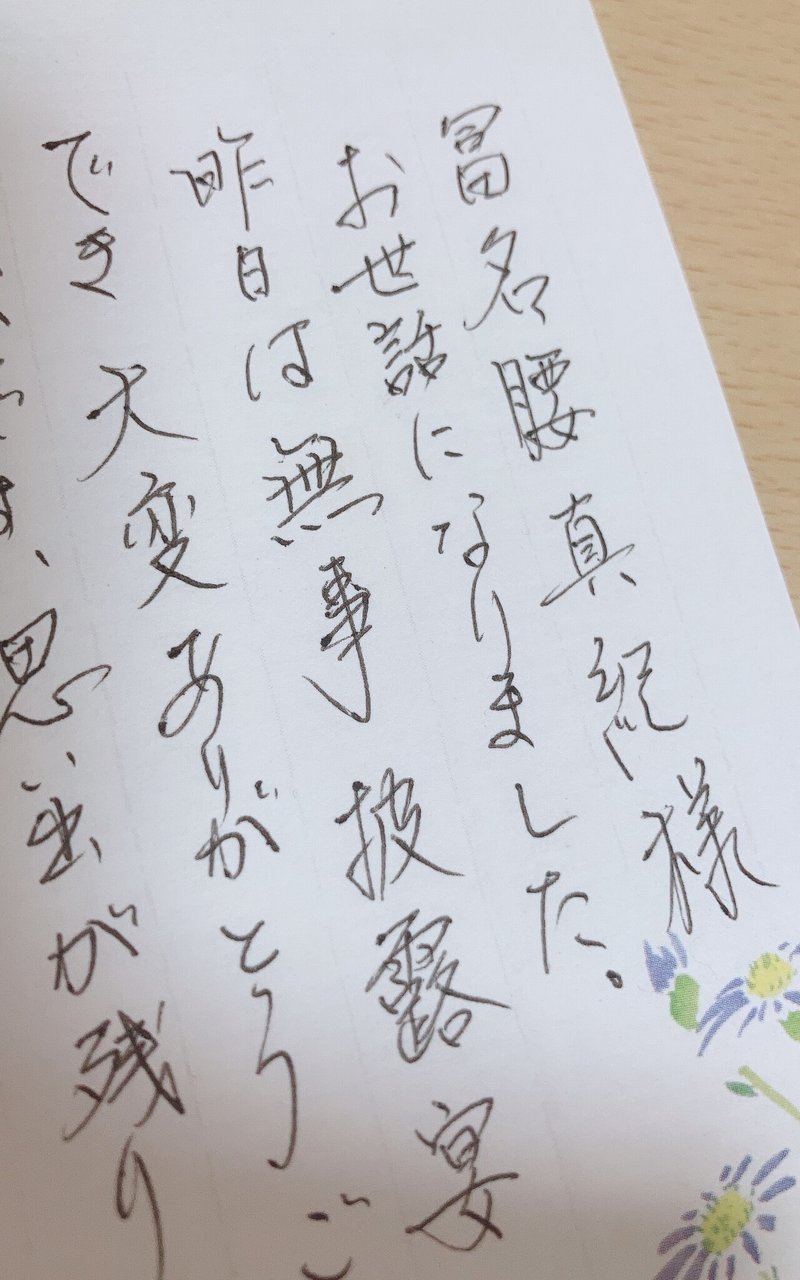 冨名腰真紀様
お世話になりました。
昨日は無事披露宴
でき大変ありがとうご
、思い出が残り